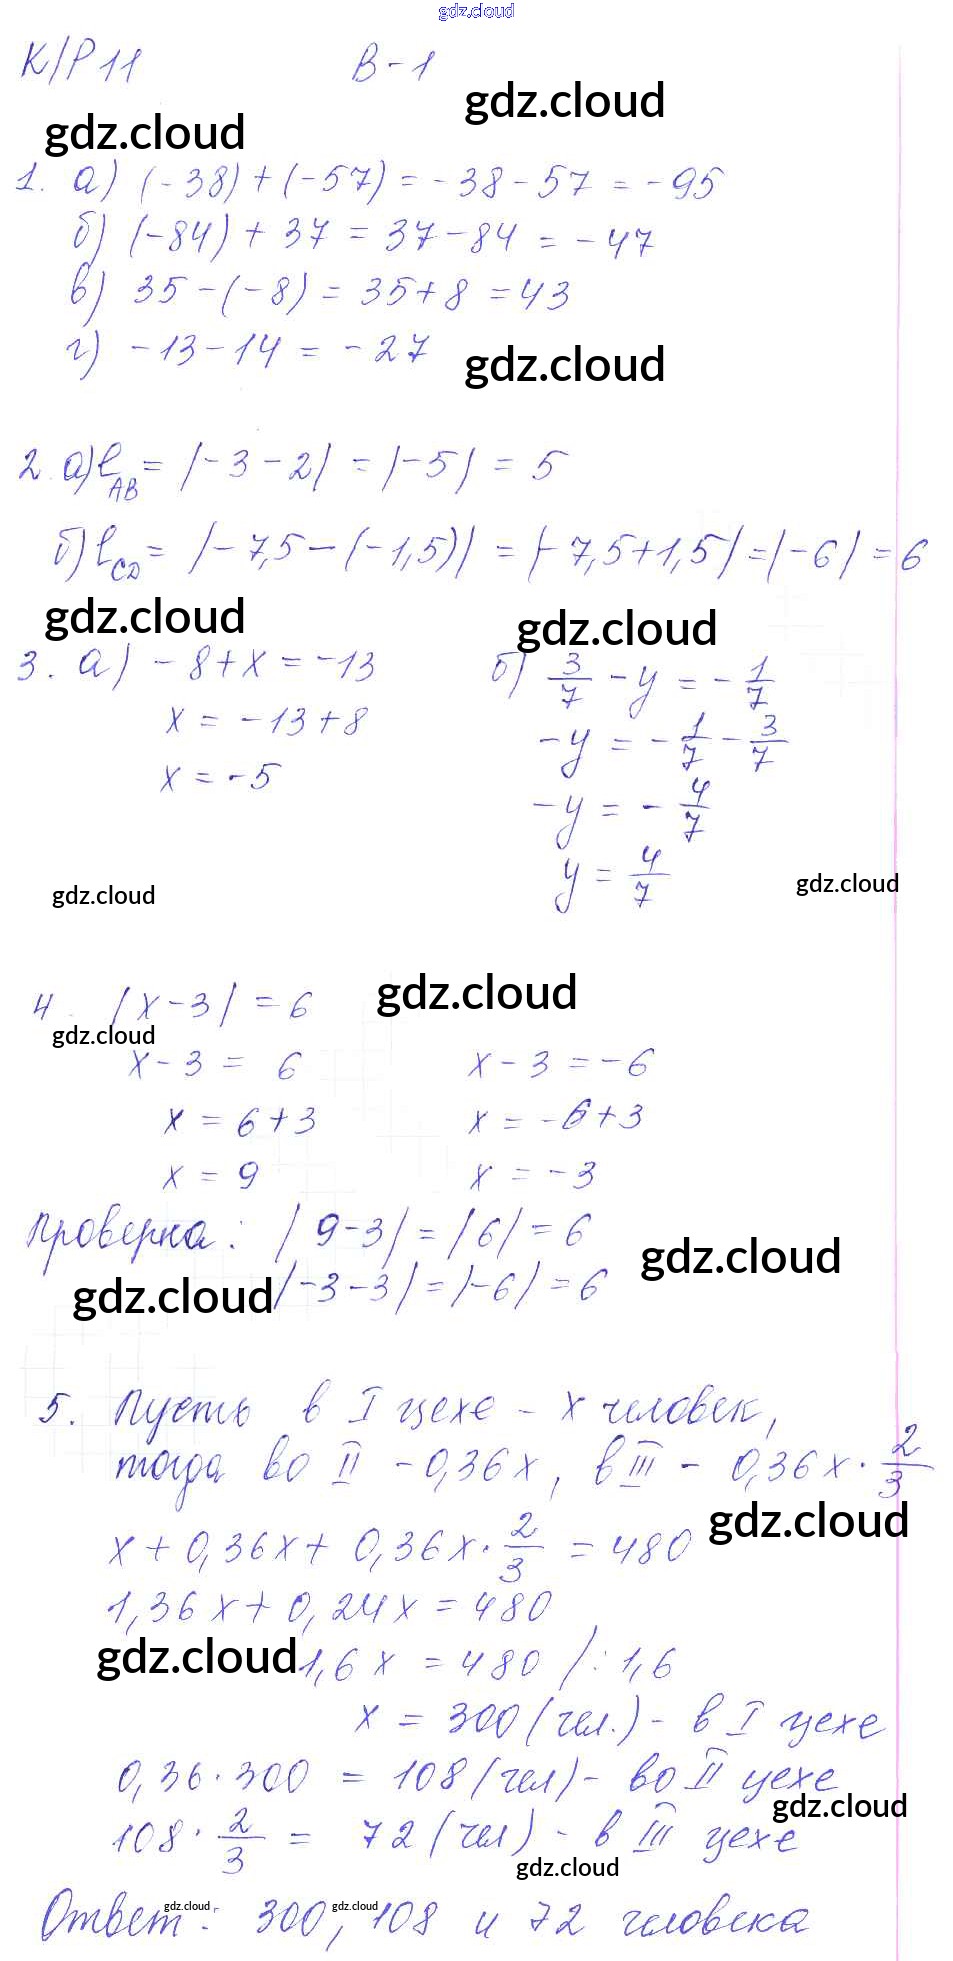 gdz.cloud
К/Р 11 В-1
gdz.cloud
gdz.cloud
1. а) (-38) + (-57) = -38 - 57 = -95
б) (-84) + 37 = 37 - 84 = -47
в) 35 - (-8) = 35 + 8 = 43
г) -13 - 14 = -27
gdz.cloud
2. а) l_AB = |-3 - 2| = |-5| = 5
б) l_CD = |-7,5 - (-1,5)| = |-7,5 + 1,5| = |-6| = 6
gdz.cloud
gdz.cloud
3. а) -8 + x = -13
x = -13 + 8
x = -5
б) 3/7 - y = -1/7
-y = -1/7 - 3/7
-y = -4/7
y = 4/7
gdz.cloud
gdz.cloud
gdz.cloud
4. |x - 3| = 6
gdz.cloud
x - 3 = 6 x - 3 = -6
x = 6 + 3 x = -6 + 3
x = 9 x = -3
Проверка: |9 - 3| = |6| = 6
gdz.cloud
gdz.cloud
|-3 - 3| = |-6| = 6
5. Пусть в I цехе - x человек,
тогда во II - 0,36x, в III - 0,36x · 2/3
gdz.cloud
x + 0,36x + 0,36x · 2/3 = 480
1,36x + 0,24x = 480
gdz.cloud
1,6x = 480 /: 1,6
x = 300 (чел.) - в I цехе
0,36 · 300 = 108 (чел) - во II цехе
gdz.cloud
108 · 2/3 = 72 (чел) - в III цехе
gdz.cloud
gdz.cloud
gdz.cloud
Ответ: 300, 108 и 72 человека